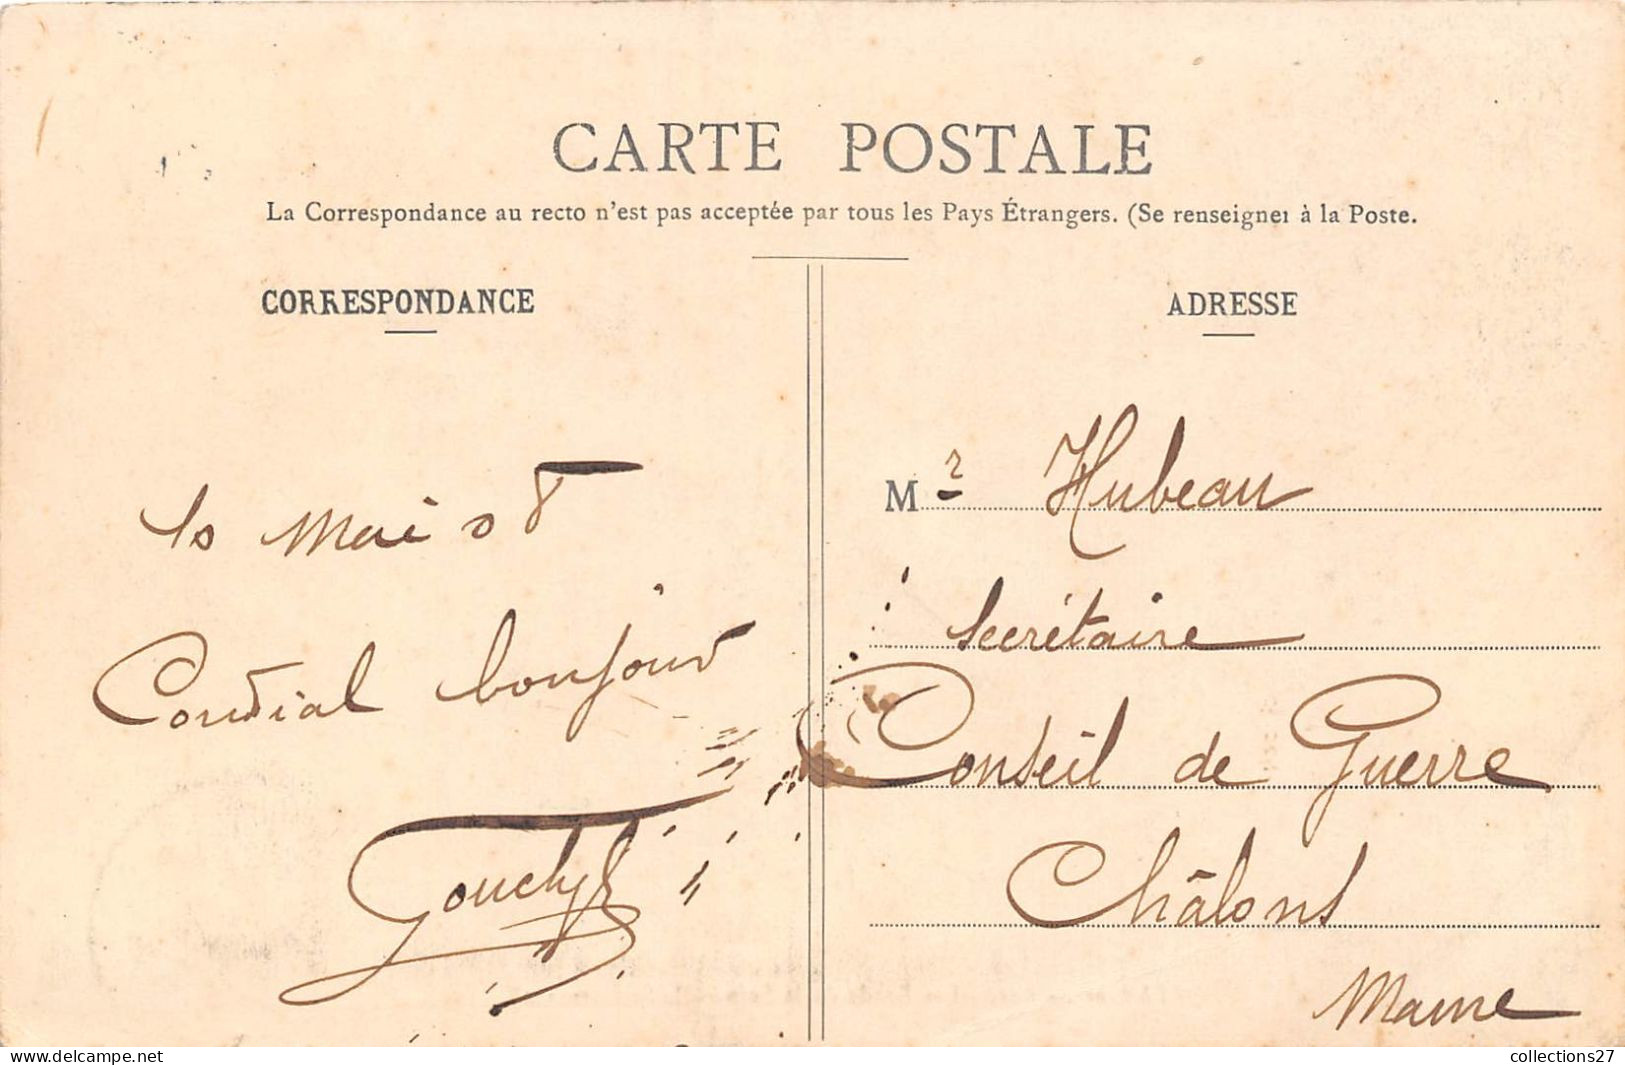 CARTE POSTALE
La Correspondance au recto n'est pas acceptée par tous les Pays Étrangers. (Se renseigner à la Poste.
CORRESPONDANCE
10 Mai 08
Cordial bonjour
ADRESSE
Mr Hubeau
Secrétaire
Conseil de Guerre
Châlons
Marne
collections27